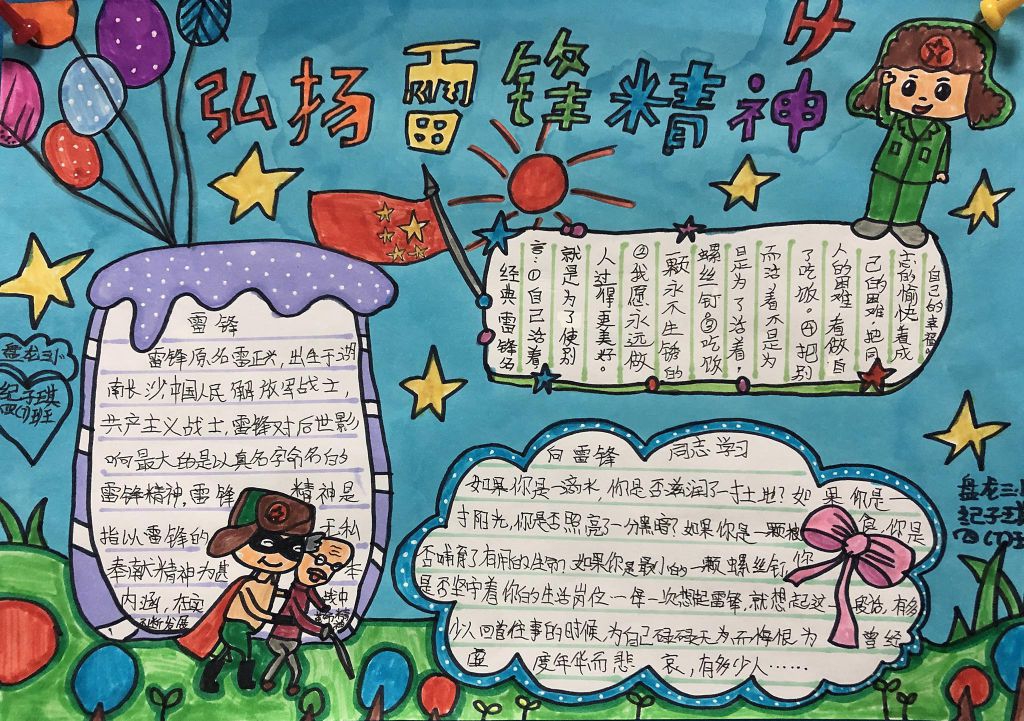 弘扬雷锋精神
经典雷锋名
言:①自己活着
就是为了使别
人过得更美好。
②我愿永远做
一颗永不生锈的
螺丝钉③吃饭
是为了活着,
而活着不是为
了吃饭。④把别
人的困难 看做自
己的困难,把同
志的愉快看成
自己的幸福。
雷锋
雷锋原名雷正兴,出生于湖
南长沙,中国人民解放军战士,
共产主义战士,雷锋对后世影
响最大的是以真名字命名的
雷锋精神,雷锋 精神是
指以雷锋的 无私
奉献精神为基 本
内涵,在实 践中
不断发展
盘龙三小
纪子琪
四(1)班
向雷锋 同志学习
如果你是一滴水,你是否滋润了一寸土地?如果你是一
寸阳光,你是否照亮了一分黑暗?如果你是一颗粮食,你是
否哺育了有用的生命,如果你是最小的一颗螺丝钉,你
是否坚守着你的生活岗位 一年一次想起雷锋,就想起这一段话,有多
少人回首往事的时候,为自己碌碌无为而悔恨 为 曾经
虚度年华而悲 哀,有多少人……
盘龙三小
纪子琪
四(1)班